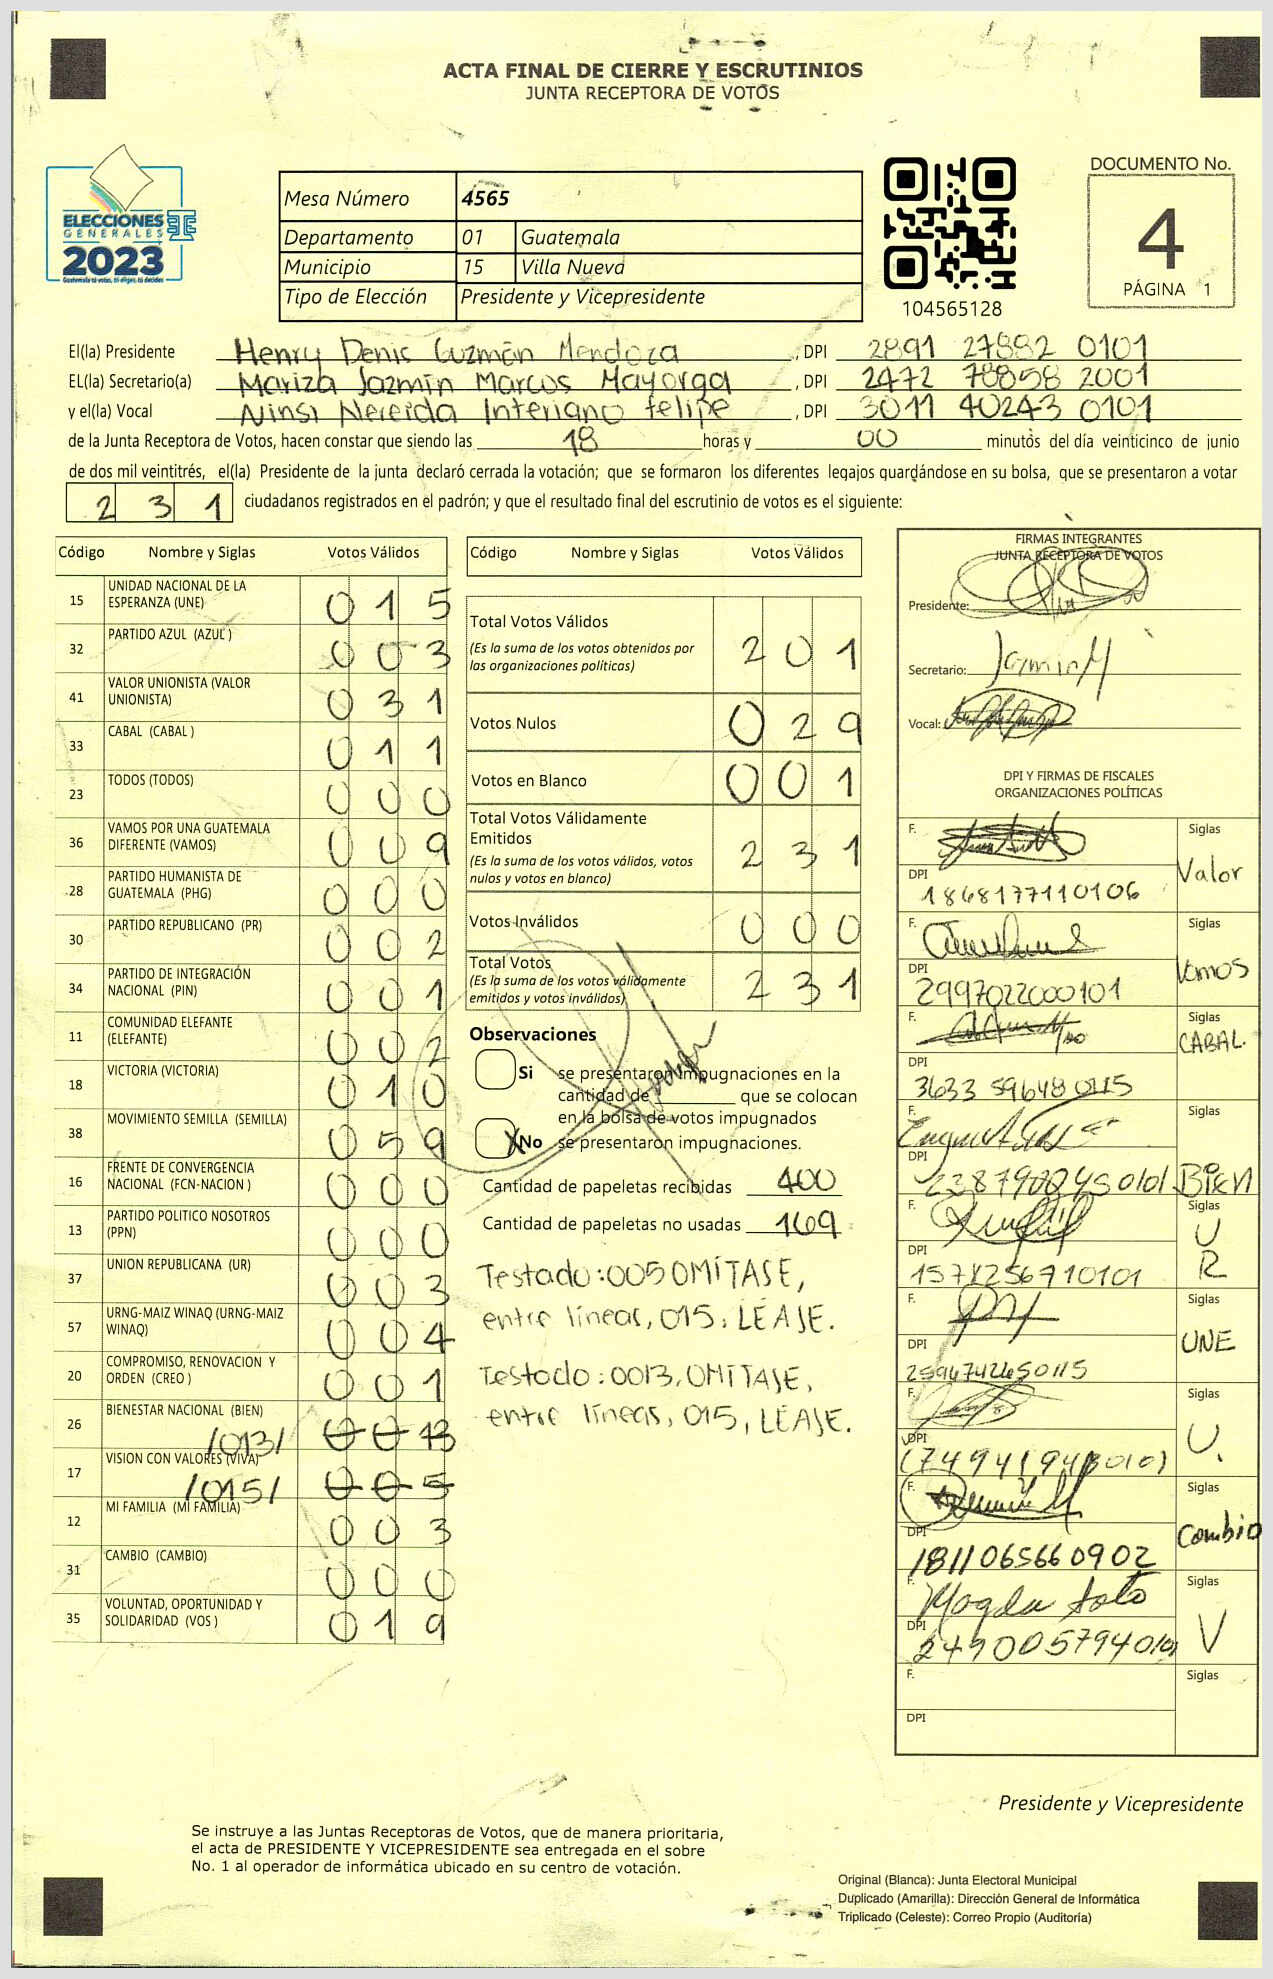 ACTA FINAL DE CIERRE Y ESCRUTINIOS
JUNTA RECEPTORA DE VOTOS
ELECCIONES
GENERALES
2023
Guatemala tú votas, tú eliges, tú decides
Mesa Número 4565
Departamento 01 Guatemala
Municipio 15 Villa Nueva
Tipo de Elección Presidente y Vicepresidente
104565128
DOCUMENTO No.
4
PÁGINA 1
El(la) Presidente Henry Denis Guzmán Mendoza, DPI 2891 27882 0101
EL(la) Secretario(a) Mariza Jazmín Marcos Mayorga, DPI 2472 78858 2001
y el(la) Vocal Ninsi Nereida Interiano felipe, DPI 3011 40243 0101
de la Junta Receptora de Votos, hacen constar que siendo las 18 horas y 00 minutos del día veinticinco de junio
de dos mil veintitrés, el(la) Presidente de la junta declaró cerrada la votación; que se formaron los diferentes legajos quardándose en su bolsa, que se presentaron a votar
2 3 1 ciudadanos registrados en el padrón; y que el resultado final del escrutinio de votos es el siguiente:
Código Nombre y Siglas Votos Válidos
15 UNIDAD NACIONAL DE LA ESPERANZA (UNE) 0 1 5
32 PARTIDO AZUL (AZUL ) 0 0 3
41 VALOR UNIONISTA (VALOR UNIONISTA) 0 3 1
33 CABAL (CABAL ) 0 1 1
23 TODOS (TODOS) 0 0 0
36 VAMOS POR UNA GUATEMALA DIFERENTE (VAMOS) 0 0 9
28 PARTIDO HUMANISTA DE GUATEMALA (PHG) 0 0 0
30 PARTIDO REPUBLICANO (PR) 0 0 2
34 PARTIDO DE INTEGRACIÓN NACIONAL (PIN) 0 0 1
11 COMUNIDAD ELEFANTE (ELEFANTE) 0 0 2
18 VICTORIA (VICTORIA) 0 1 0
38 MOVIMIENTO SEMILLA (SEMILLA) 0 5 9
16 FRENTE DE CONVERGENCIA NACIONAL (FCN-NACION ) 0 0 0
13 PARTIDO POLITICO NOSOTROS (PPN) 0 0 0
37 UNION REPUBLICANA (UR) 0 0 3
57 URNG-MAIZ WINAQ (URNG-MAIZ WINAQ) 0 0 4
20 COMPROMISO, RENOVACION Y ORDEN (CREO ) 0 0 1
26 BIENESTAR NACIONAL (BIEN) /013/ 0 0 13
17 VISION CON VALORES (VIVA) /015/ 0 0 5
12 MI FAMILIA (MI FAMILIA) 0 0 3
31 CAMBIO (CAMBIO) 0 0 0
35 VOLUNTAD, OPORTUNIDAD Y SOLIDARIDAD (VOS ) 0 1 9
Código Nombre y Siglas Votos Válidos
Total Votos Válidos 2 0 1
(Es la suma de los votos obtenidos por
las organizaciones políticas)
Votos Nulos 0 2 9
Votos en Blanco 0 0 1
Total Votos Válidamente
Emitidos 2 3 1
(Es la suma de los votos válidos, votos
nulos y votos en blanco)
Votos Inválidos 0 0 0
Total Votos 2 3 1
(Es la suma de los votos válidamente
emitidos y votos inválidos)
Observaciones
Si se presentaron impugnaciones en la
cantidad de que se colocan
en la bolsa de votos impugnados
X No se presentaron impugnaciones.
Cantidad de papeletas recibidas 400
Cantidad de papeletas no usadas 169
Testado:005 OMÍTASE,
entre líneas, 015, LÉASE.
Testado: 0013, OMÍTASE,
entre líneas, 015, LÉASE.
FIRMAS INTEGRANTES
JUNTA RECEPTORA DE VOTOS
Presidente:
Secretario: Jazmin M
Vocal:
DPI Y FIRMAS DE FISCALES
ORGANIZACIONES POLÍTICAS
F. Siglas
Valor
DPI 1868177110106
F. Siglas
Vamos
DPI 2997022000101
F. Siglas
CABAL.
DPI 3633 596480115
F. Siglas
BIEN
DPI
F. Siglas
U
R
DPI 1571256710101
F. Siglas
UNE
DPI 2596742650115
F. Siglas
U.
DPI
F. Siglas
Cambio
DPI 1811065660902
F. Magda Soto Siglas
V
DPI 2490057940101
F. Siglas
DPI
Presidente y Vicepresidente
Se instruye a las Juntas Receptoras de Votos, que de manera prioritaria,
el acta de PRESIDENTE Y VICEPRESIDENTE sea entregada en el sobre
No. 1 al operador de informática ubicado en su centro de votación.
Original (Blanca): Junta Electoral Municipal
Duplicado (Amarilla): Dirección General de Informática
Triplicado (Celeste): Correo Propio (Auditoría)